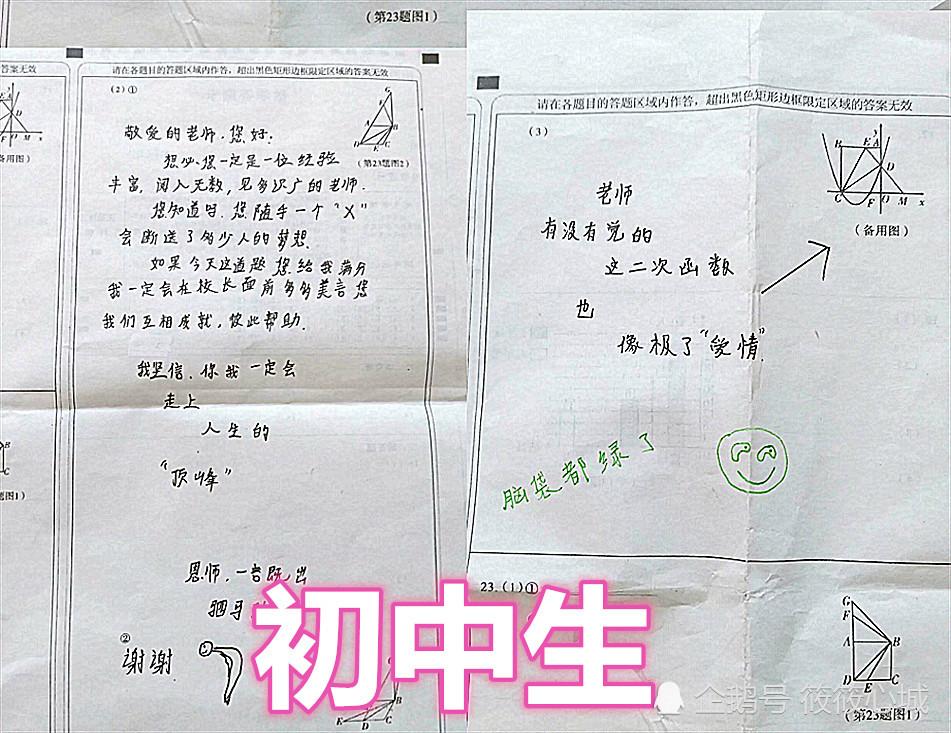 (第23题图1)
答案无效
请在各题目的答题区域内作答，超出黑色矩形边框限定区域的答案无效
(2)①
G
F
A
B
D
E
C
(第23题图2)
敬爱的老师.您好:
想必您一定是一位经验
丰富,阅人无数,见多识广的老师.
您知道吗.您随手一个"X"
会断送了多少人的梦想.
如果今天这道题您给我满分
我一定会在校长面前多多美言您
我们互相成就,彼此帮助.
我坚信.你我一定会
走上
人生的
"顶峰"
恩师.一言既出
驷马
②
谢谢
B
E
D
C
D
F
O
M
x
备用图)
B
C
题图1)
请在各题目的答题区域内作答，超出黑色矩形边框限定区域的答案无效
(3)
y
B
E
A
D
C
F
O
M
x
(备用图)
老师
有没有觉的
这二次函数
也
像极了"爱情"
脑袋都绿了
23.(1)①
G
F
A
B
D
E
C
(第23题图1)
初中生
企鹅号 筱筱心城